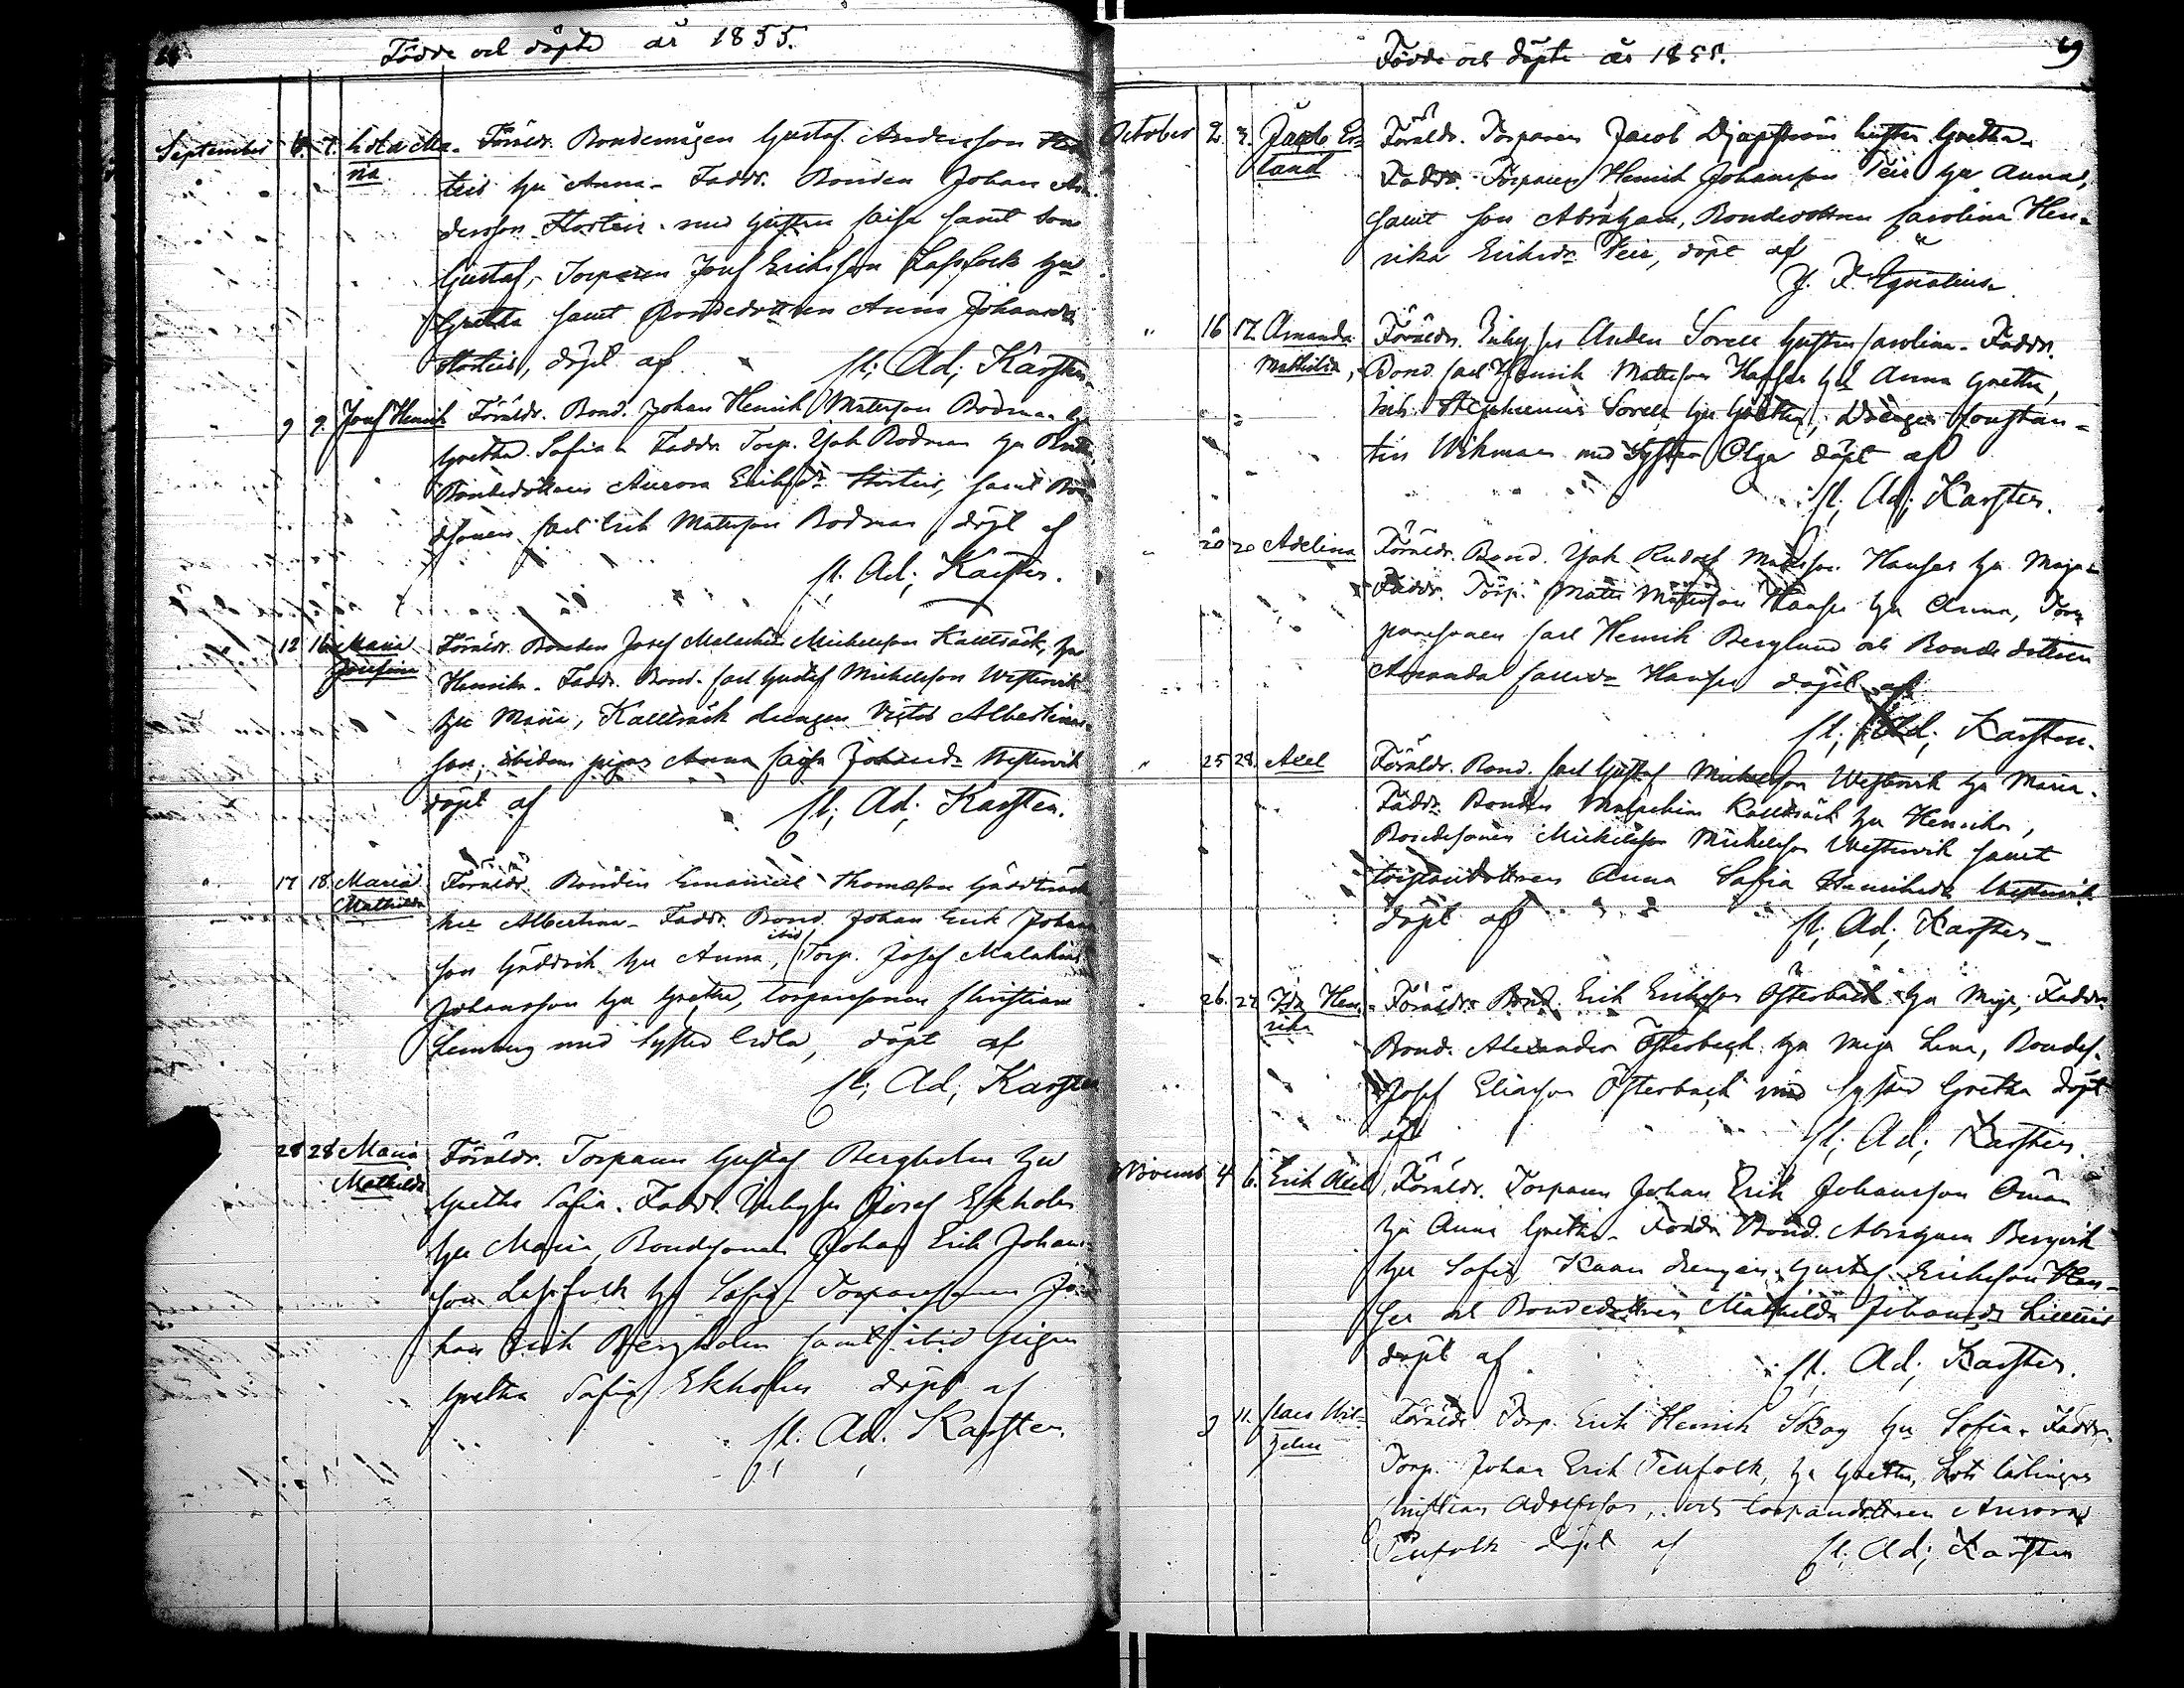 Födde och döpte år 1855.
September 6. 7. Lovisa Ma- Föräldr. Bondemågen Gustaf Andersson
ria teis hu Anna - Faddr. Bonden Johan An
dersson Storteis med hustru Caisa samt son
Gustaf, Torparen Josef Eriksson Lassfolk hu
Gretha samt Bondedottren Anna Johansdr
Storteis, döpt af Fl. Ad. Karsten
9 9. Josef Henrik Föräldr. Bond. Johan Henrik Matsson Rodman hu
Gretha Sofia Faddr. Torp. Joh Rodman hu
Bondedottren Aurora Eriksdr Storteis, samt Bon
dsonen Carl Erik Matsson Rodman döpt af
Fl. Ad. Karsten.
12 16 Maria Föräldr. Bonden Josef Malachias Mickelsson Kallträsk, hu
Josefina Henrika - Faddr. Bond. Carl Gustaf Mickelsson Westervik
hu Maria, Kallträsk drengen Victor Albertinus
son, ibidem pigan Anna Caisa Johansdr Westervik
döpt af Fl. Ad. Karsten.
17 18 Maria Föräldr. Bonden Emanuel Thomasson Gäddträsk
Mathilda hu Albertina - Faddr. Bond. Johan Erik Johans
son Gäddvik hu Anna, ibid Torp. Josef Malakias
Johansson hu Gretha, torparsonen Christian
Lemberg med syster Edla, döpt af
Fl. Ad. Karsten
28 28 Maria Föräldr. Torparen Gustaf Bergholm hu
Mathilda Gretha Sofia. Faddr. Inhyses Josef Ekholm
hu Maria, Bondsonen Johan Erik Johans
son Lassfolk hu Sofia Torparsonen Jo
han Erik Bergholm samt ibid pigan
Gretha Sofia Ekholm döpt af
Fl. Ad. Karsten.
Födde och döpte år 1855. 69
October 2. 3. Jacob Er- Föräldr. Torparen Jacob Djupström hustru Gretha
land Faddr. Torparen Henrik Johansson Teir hu Anna,
samt son Abraham, Bondedottren Carolina Hen-
rika Eriksdr Teir, döpt af
J. F. Ignatius
" 16 17. Amanda Föräldr. Inhyses Anders Sorell hustru Carolina - Faddr.
Mathilda, Bond. Carl Henrik Mattsson Hanses hu Anna Gretha,
Inh. Sorell hu Gretha, Drengen Constan-
tin Wikman med syster Olga döpt af
Fl. Ad. Karsten.
20 20 Adelina Föräldr. Bond. Joh Rudolf Mattsson Hanses hu Maja
Faddr. Torp. Matts Mattsson Hanses hu Anna, Tor
paresonen Carl Henrik Berglund och Bondedottren
Amanda Carlsdr Hanses döpt af
Fl. Ad. Karsten.
" 25 28. Axel Föräldr. Bond. Carl Gustaf Mickelsson Westervik hu Maria.
Faddr. Bonden Malachias Kallträsk hu Henrika,
Bondesonen Mickel Mickelsson Westervik samt
torparedottren Anna Sofia Henriksdr Westervik
döpt af Fl. Ad. Karsten
26. 27 Ida Hen- Föräldr. Bond. Erik Eriksson Österback hu Maja, Faddr.
rika Bond. Alexander Österback hu Maja Lena, Bondes.
Josef Eliasson Österback med syster Gretha döpt
af Fl. Ad. Karsten.
Novemb 4 6. Erik Axel Föräldr. Torparen Johan Erik Johansson Öman
hu Anna Gretha - Faddr. Bond. Abraham Bergvik
hu Sofia, Knaus drengen Gustaf Eriksson Han-
ses och Bondedottren Mathilda Johansdr Lillteis
döpt af Fl. Ad. Karsten.
9 11. Claes Wil- Föräldr. Torp. Erik Henrik Skog hu Sofia. Faddr.
helm Torp. Johan Erik Tenfolk, hu Gretha, Lots lärlingen
Christian Adolfsson, och torparedottren Aurora
Tenfolk döpt af Fl. Ad. Karsten